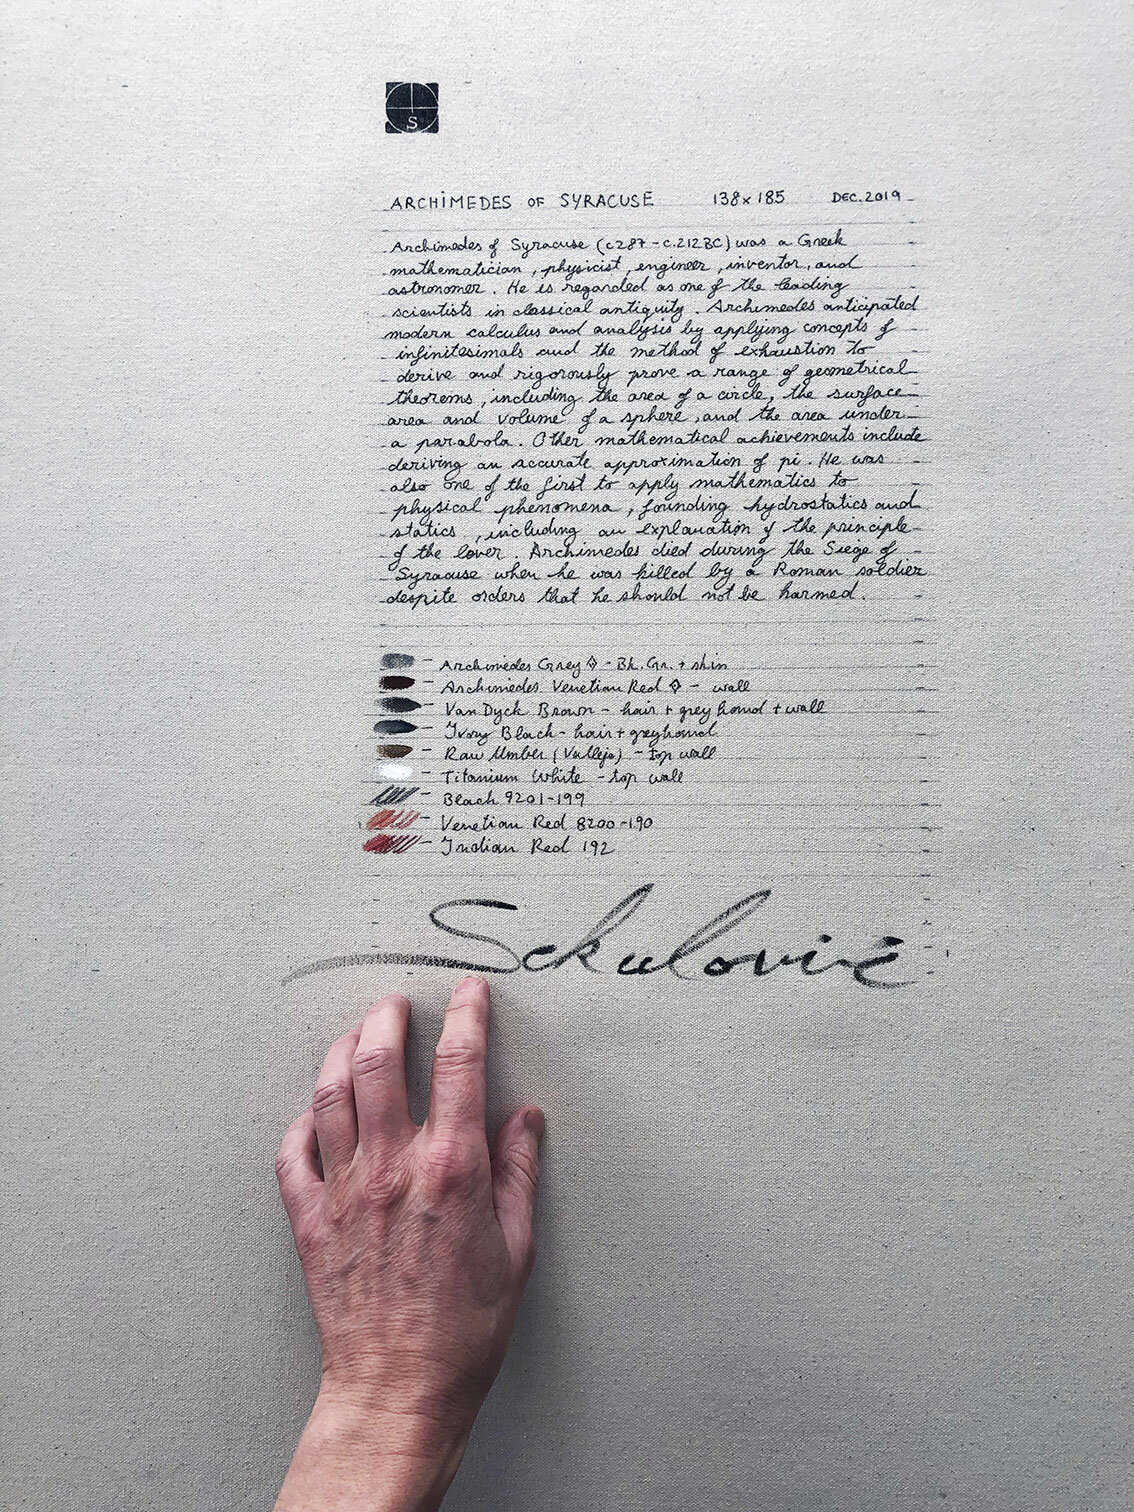 S
ARCHIMEDES OF SYRACUSE 138x185 DEC.2019
Archimedes of Syracuse (c287-c.212BC) was a Greek
mathematician, physicist, engineer, inventor, and
astronomer. He is regarded as one of the leading
scientists in classical antiquity. Archimedes anticipated
modern calculus and analysis by applying concepts of
infinitesimals and the method of exhaustion to
derive and rigorously prove a range of geometrical
theorems, including the area of a circle, the surface
area and volume of a sphere, and the area under
a parabola. Other mathematical achievements include
deriving an accurate approximation of pi. He was
also one of the first to apply mathematics to
physical phenomena, founding hydrostatics and
statics, including an explanation of the principle
of the lever. Archimedes died during the Siege of
Syracuse when he was killed by a Roman soldier
despite orders that he should not be harmed.
- Archimedes Grey ◊ - Bk. Gr. + skin
- Archimedes Venetian Red ◊ - wall
- Van Dyck Brown - hair + grey homd + wall
- Ivory Black - hair + greyhomd
- Raw Umber (Vallejo) - top wall
- Titanium White - top wall
- Black 9201-199
- Venetian Red 8200-190
- Indian Red 192
Sekulović